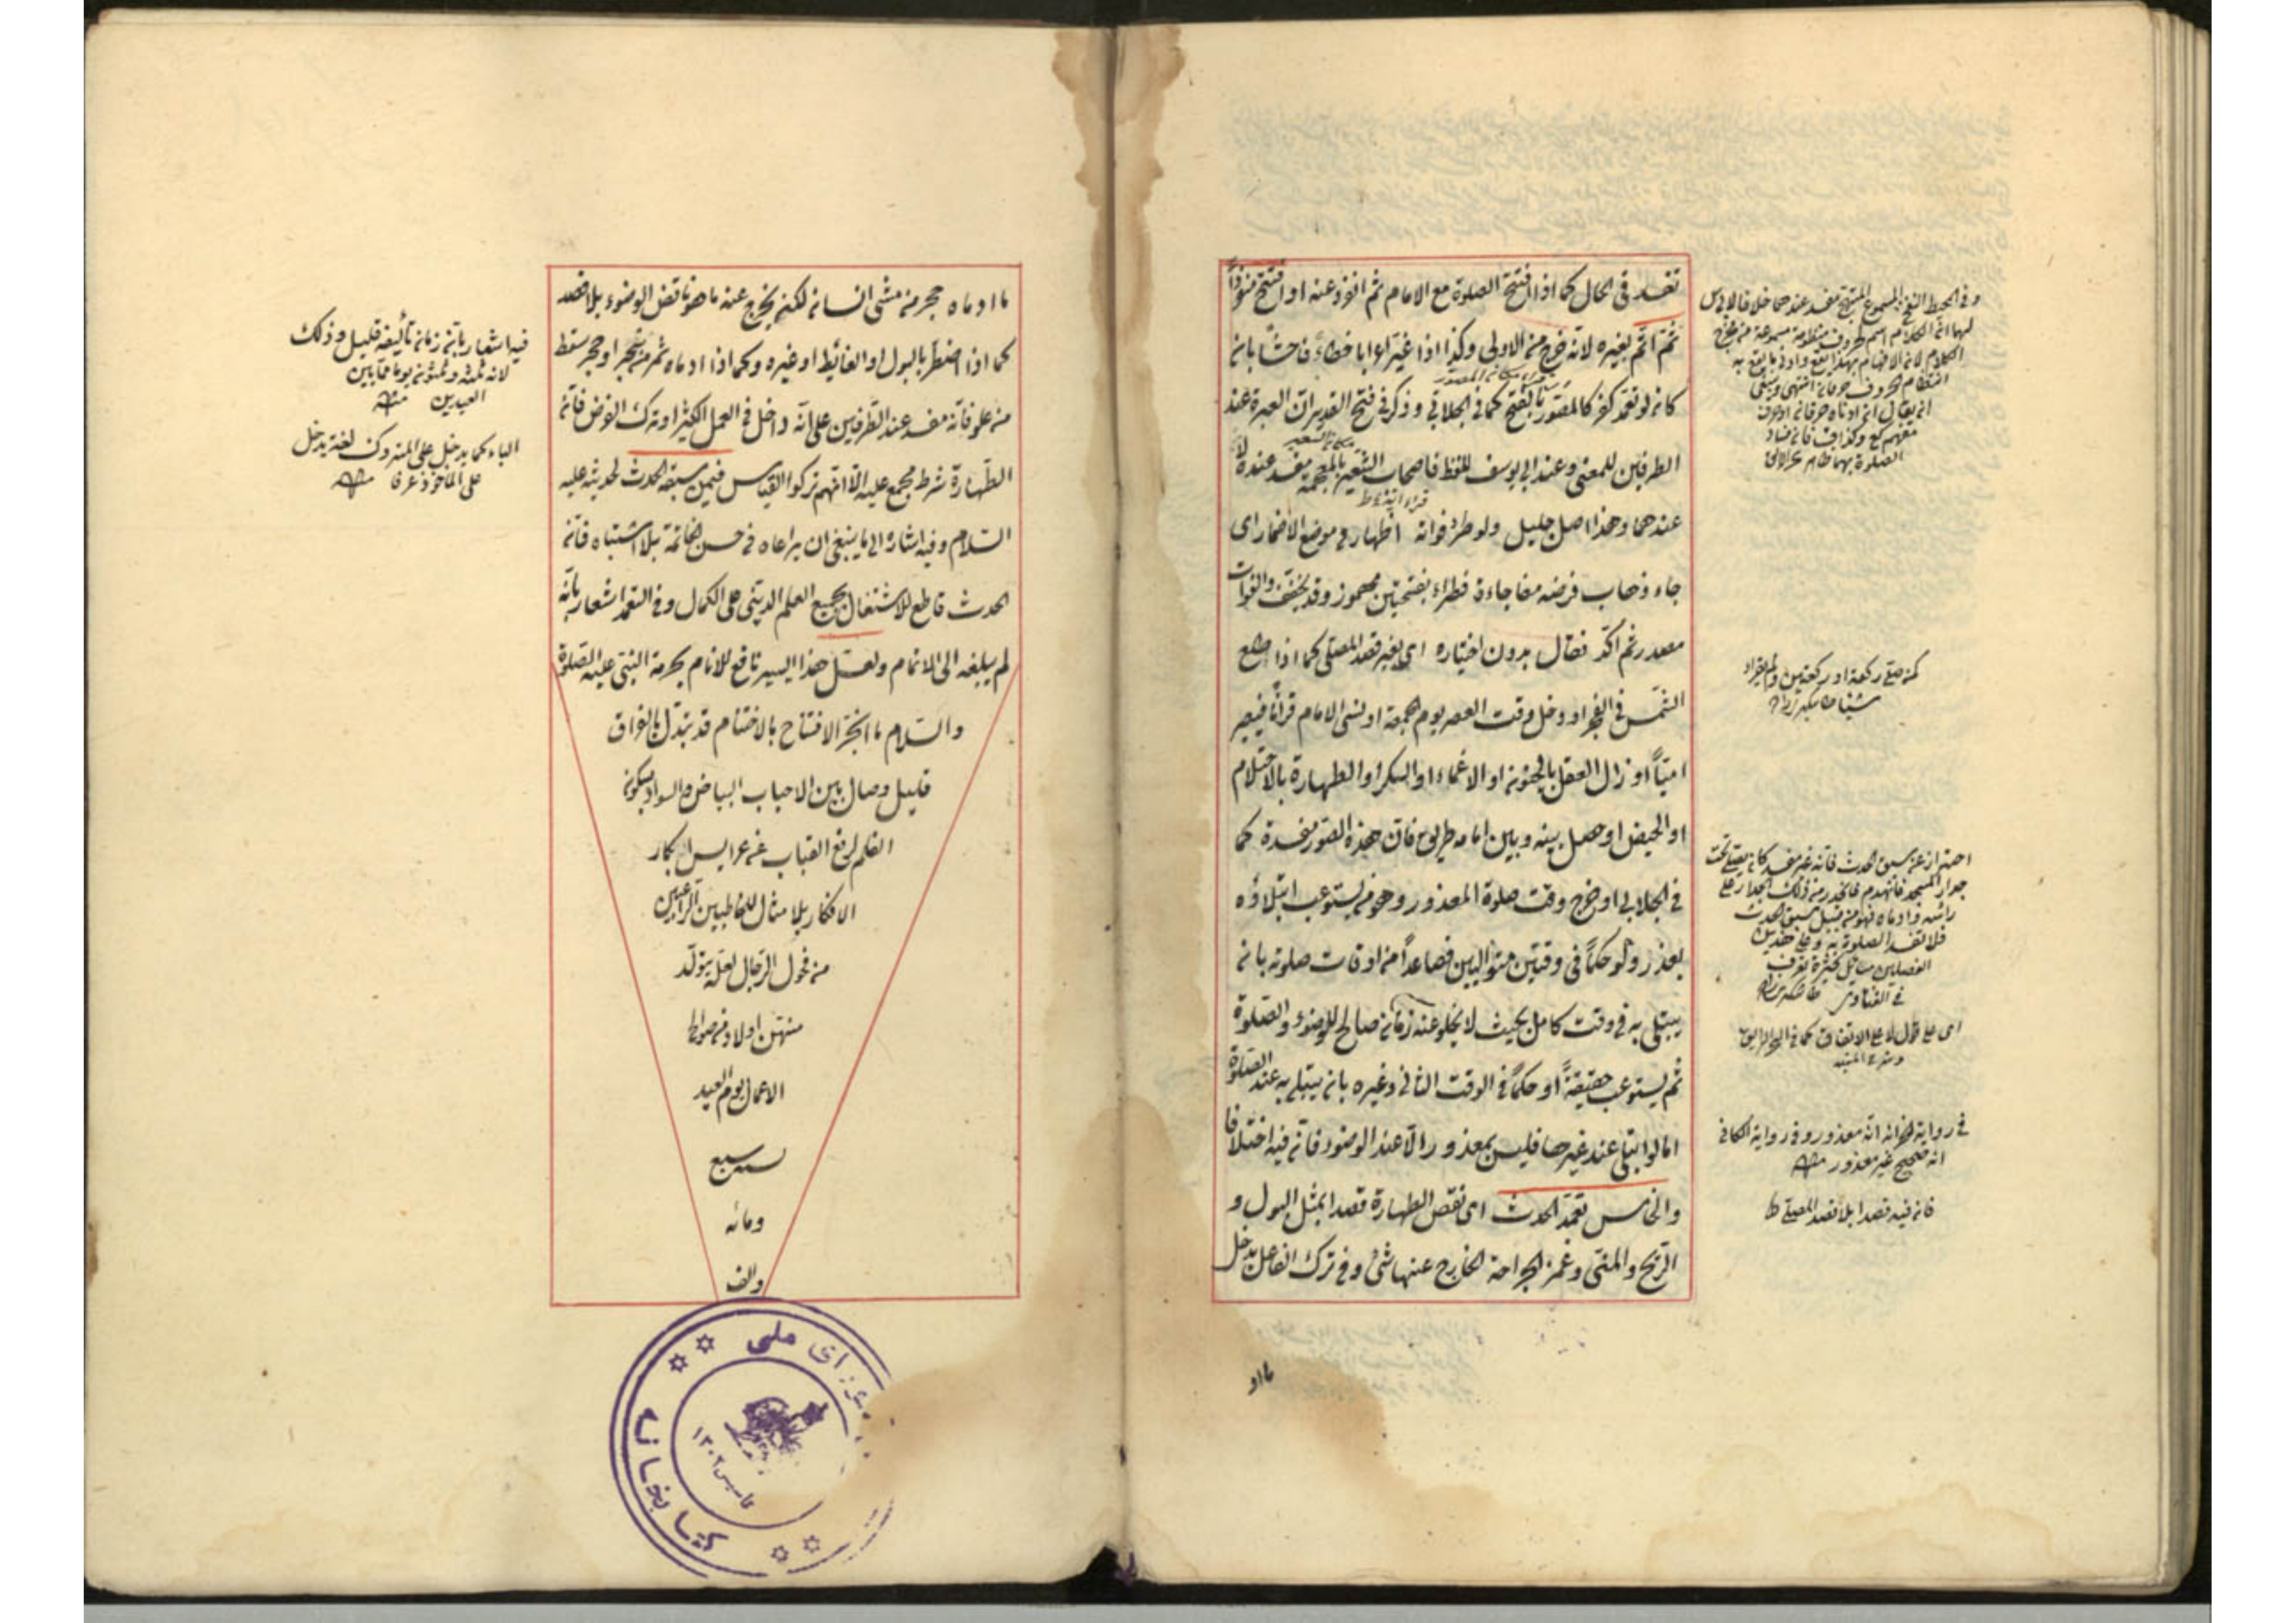 تفسد في الحال كما اذا افتتح الصلوة مع الامام ثم انفرد عنه او افتتح منفرداً
ثم اتم بغيره لانه خرج من الاولى وكذا اذا غير اعرابا خطاء فاحشا بانه
كانه لو تعمد كفر كالمصور بالفتح كما في الجلابي وذكر في فتح القدير ان العبرة عند
الطرفين للمعنى وعند ابي يوسف للفظ فاصحاب الشعير بالمعجمة مفسد عنده لا
عندهما وهذا اصل جليل ولو طرء فواته اظهار في موضع الاضمار اى
جاء وذهاب فرضه مفاجاءة فطراء بفتحتين مهموز وقد يخفف والفوات
مصدر ثم اكد فقال بدون اختياره اى بغير قصد المصلى كما اذا طلع
الشمس في الفجر او دخل وقت العصر يوم الجمعة او نسى الامام قرآنا فيصير
امياً او زال العقل بالجنون او الاغماء او السكر او الطهارة بالاحتلام
او الحيض او حصل بينه وبين امامه طريق فان هذه الصور مفسدة كما
في الجلابي او خرج وقت صلوة المعذور وهو من يستوعب ابتلاؤه
بعذر ولو حكماً في وقتين متواليين فصاعداً من اوقات صلوته بانه
يبتلى به في وقت كامل بحيث لا يخلو عنه زمان صالح للوضوء والصلوة
ثم يستوعب حقيقةً او حكماً في الوقت الثاني وغيره بانه يبتلى به عند الصلوة
اما لو ابتلى عند غيرها فليس بمعذور الا عند الوضوء فانه فيه اختلافا
والخامس تعمد الحدث اى نقض الطهارة قصدا بمثل البول و
الريح والمني وغمز الجراحة الخارج عنها شئ وفي ترك الفاعل يدخل
وفي المحيط النفخ المسموع المتهجى مفسد عندهما خلافا لابي يوس
لهما ان الكلام اسم لحروف منظومة مسموعة من مخرج
الكلام لان الافهام بهذا يقع وادنى ما يقع به
انتظام الحروف حرفان انتهى وينبغى
ان يقال ان ادناه حرفان او حرف
مفهم كع وكذا ق فان فساد
الصلوة بهما ظاهر بحر الرائق
كمن صلى ركعة او ركعتين ولم يقراء
شيئا
احتراز عن سبق الحدث فانه غير مفسد كان يصلى تحت
جدار المسجد فانهدم فانحدر من ذلك الجدار على
رأسه وادماه فهو من قبيل سبق الحدث
فلا تفسد الصلوة به وعلى هذين
الفصلين مسائل كثيرة تعرف
في الفتاوى
اى على قول لا على الاتفاق كما في البحر الرايق
وشرح المنية
في رواية الخزانة انه معذور وفي رواية الكافي
انه صحيح غير معذور منه
فان فيه قصدا بلا قصد المصلى
مااد
ما ادماه حجر من مشى انسان لكنه يخرج عنه ما هو ناقض الوضوء بلا قصد
كما اذا اضطر بالبول او الغائط او غيره وكما اذا ادماه ثمر من شجر او حجر سقط
من علو فانه مفسد عند الطرفين على انه داخل في العمل الكثير او ترك الفرض فانه
الطهارة شرط مجمع عليه الا انهم تركوا القياس فيمن سبقه الحدث لحديثه عليه
السلام وفيه اشارة الى ما ينبغي ان يراعاه في حسن الخاتمة بلا اشتباه فانه
الحدث قاطع للاشتغال بجميع العلم الديني على الكمال وفي التعمد اشعار بانه
لم يبلغه الى الاتمام ولعل هذا اليسير نافع للانام بحرمة النبي عليه الصلوة
والسلام ما انجز الافتتاح بالاختتام قد يتبدل بالفراق
قليل وصال بين الاحباب البياض والسواد بسكون
القلم لرفع النقاب عن عرايس ابكار
الافكار بلا مثال للخاطبين الراغبين
من فحول الرجال لعله يتولد
منهن اولاد من صوالح
الاعمال يوم العيد
لسنة سبع
ومائه
والف
فيه اشعار بانه زمان تأليفه قليل وذلك
لانه ثلثة وثلثون يوما ما بين
العيدين منه
الباء كما يدخل على المتروك لغة يدخل
على الماخوذ عرفا منه
شورای ملی
کتابخانه
تاسیس ۱۳۰۲